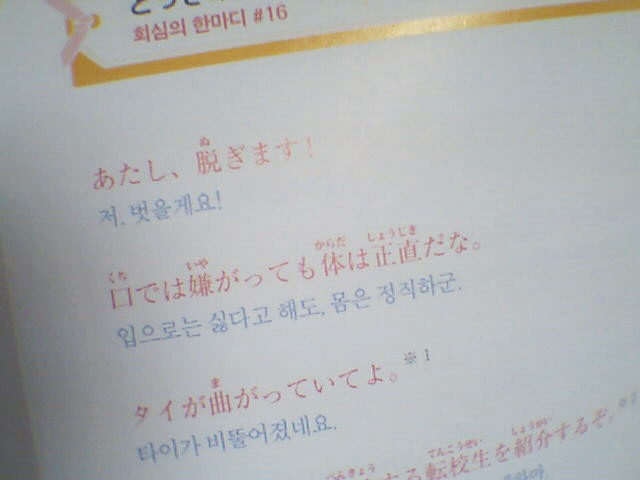 회심의 한마디 #16
あたし、脱ぎます!
저, 벗을게요!
口では嫌がっても体は正直だな。
입으로는 싫다고 해도, 몸은 정직하군.
タイが曲がっていてよ。※1
타이가 비뚤어졌네요.
する転校生を紹介するぞ。